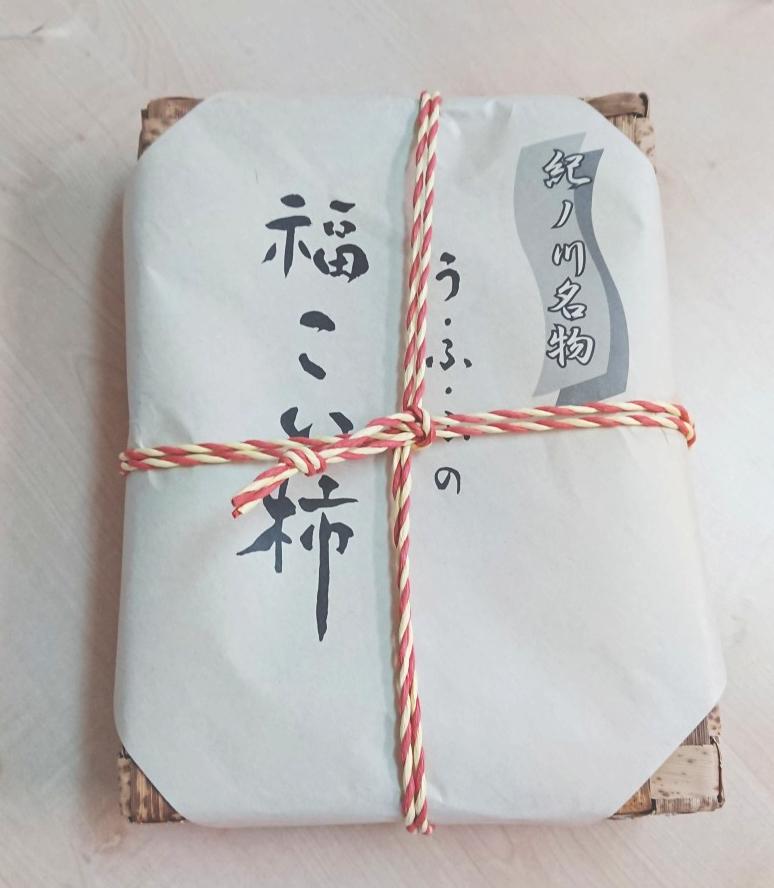 紀ノ川名物
う・ふ・ふの
福こい柿